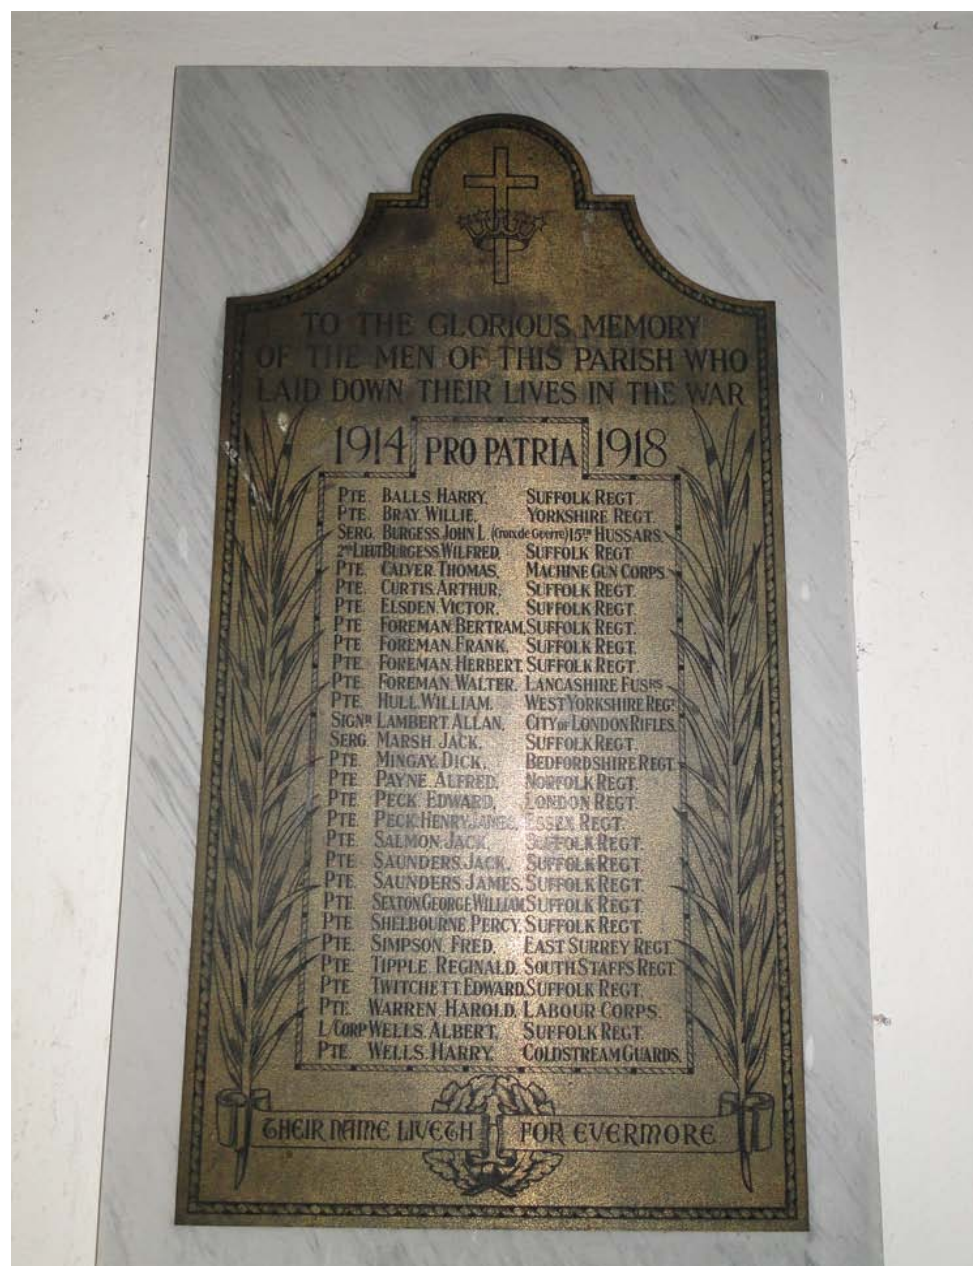 TO THE GLORIOUS MEMORY
OF THE MEN OF THIS PARISH WHO
LAID DOWN THEIR LIVES IN THE WAR
1914 PRO PATRIA 1918
PTE. BALLS. HARRY. SUFFOLK REGT.
PTE. BRAY. WILLIE. YORKSHIRE REGT.
SERG. BURGESS. JOHN L. (Croix de Guerre) 15TH HUSSARS.
2ND LIEUT BURGESS. WILFRED. SUFFOLK REGT
PTE. CALVER. THOMAS. MACHINE GUN CORPS.
PTE. CURTIS. ARTHUR. SUFFOLK REGT.
PTE. ELSDEN. VICTOR. SUFFOLK REGT.
PTE. FOREMAN. BERTRAM. SUFFOLK REGT.
PTE. FOREMAN. FRANK. SUFFOLK REGT.
PTE. FOREMAN. HERBERT. SUFFOLK REGT.
PTE. FOREMAN. WALTER. LANCASHIRE FUSRS
PTE. HULL. WILLIAM. WEST YORKSHIRE REGT.
SIGNR LAMBERT. ALLAN. CITY OF LONDON RIFLES.
SERG. MARSH. JACK. SUFFOLK REGT.
PTE. MINGAY. DICK. BEDFORDSHIRE REGT.
PTE. PAYNE. ALFRED. NORFOLK REGT.
PTE. PECK. EDWARD. LONDON REGT.
PTE. PECK. HENRY JAMES. ESSEX REGT.
PTE. SALMON. JACK. SUFFOLK REGT.
PTE. SAUNDERS. JACK. SUFFOLK REGT.
PTE. SAUNDERS. JAMES. SUFFOLK REGT.
PTE. SEXTON GEORGE WILLIAM SUFFOLK REGT.
PTE. SHELBOURNE. PERCY. SUFFOLK REGT.
PTE. SIMPSON. FRED. EAST SURREY REGT.
PTE. TIPPLE. REGINALD. SOUTH STAFFS REGT.
PTE. TWITCHETT. EDWARD. SUFFOLK REGT.
PTE. WARREN. HAROLD. LABOUR CORPS.
L/CORP WELLS. ALBERT. SUFFOLK REGT.
PTE. WELLS. HARRY. COLDSTREAM GUARDS.
THEIR NAME LIVETH FOR EVERMORE